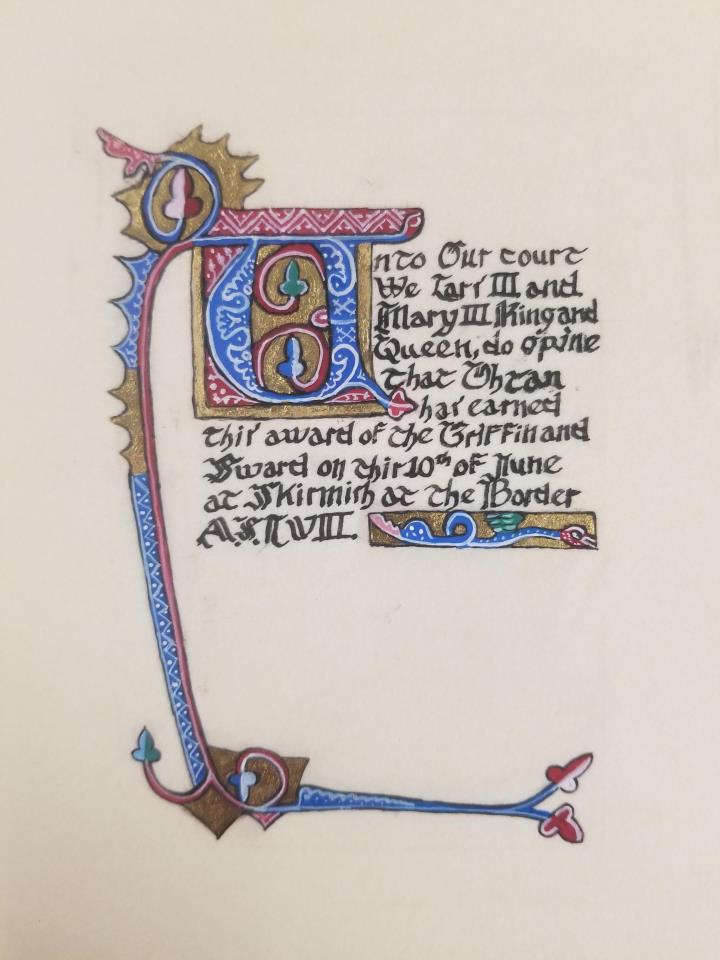 Unto Our court
We Tarr III and
Mary III King and
Queen, do opine
that Ohtan
has earned
this award of the Griffin and
Sward on this 10th of June
at Skirmish at the Border
A.S. LVIII.